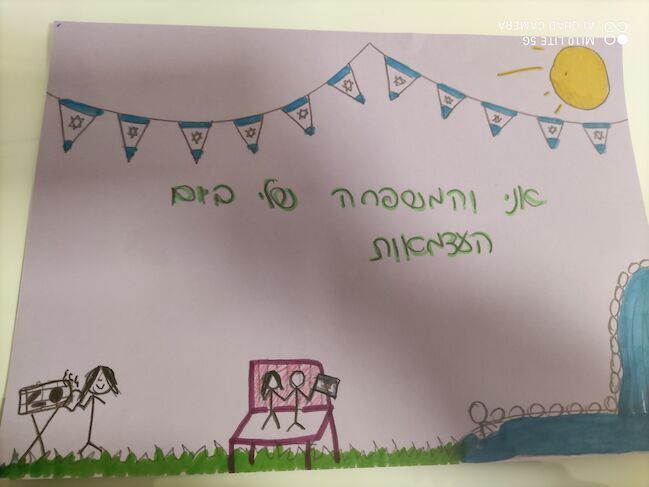 אני והמשפחה שלי ביום
העצמאות
MI 10 LITE 5G
AI QUAD CAMERA